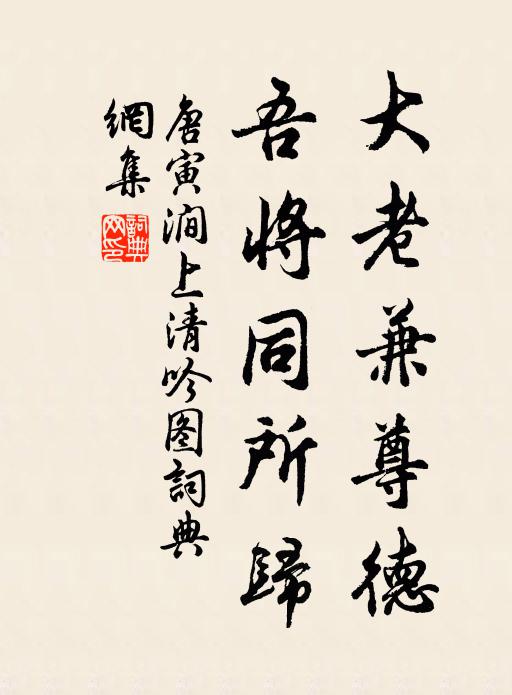 大老兼尊德
吾將同所歸
唐寅澗上清吟圖詞典
網集
詞典
网印